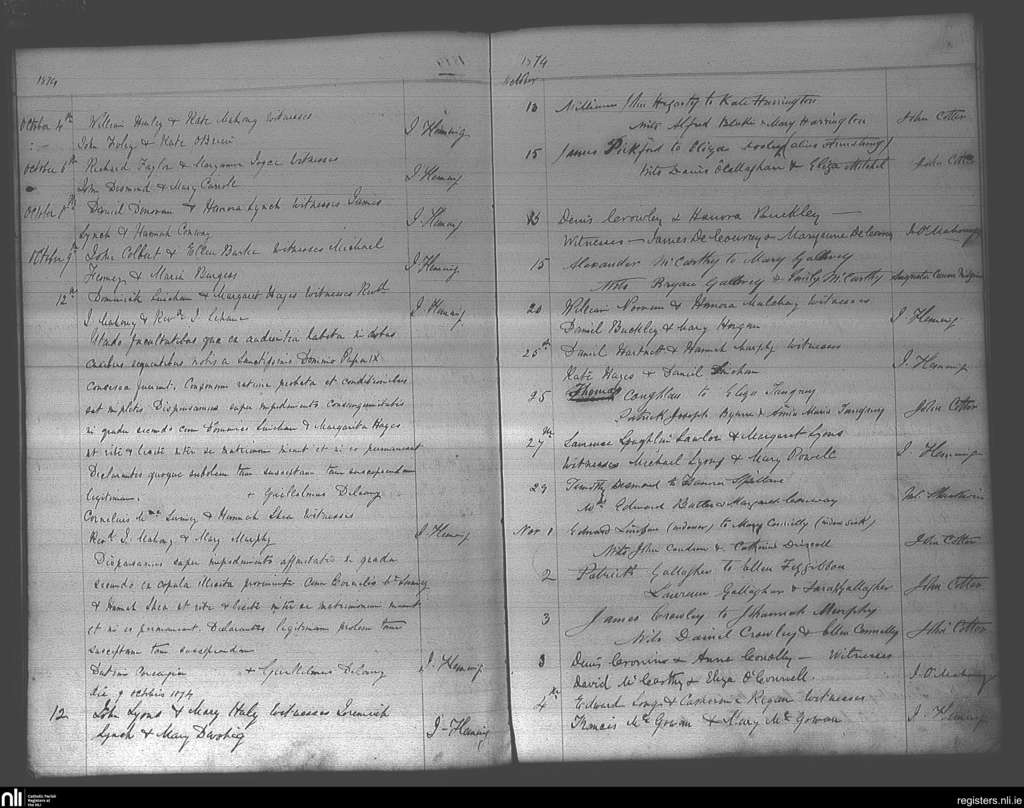 1874
October 4th William Hurly & Kate Mahony Witnesses
John Foley & Kate O'Brien J Fleming
October 6th Richard Taylor & Maryanne Joyce Witnesses
John Desmond & Mary Carroll J Fleming
October 8th Daniel Donovan & Hanora Lynch Witnesses James
Lynch & Hannah Conway J Fleming
October 9th John Colbert & Ellen Burke Witnesses Michael
& Maria Burgess J Fleming
12th Dominick & Margaret Hayes Witnesses Revd
J Mahony & Revd J. J Fleming
facultatibus que ex audientia habita in
casibus sequentibus nobis a Sanctissimo Domino Papa IX
Consensu
sat Dispensamus super impedimento consanguinitatis
in gradu secundo cum & Margarita Hayes
et rite & licite inter se matrimonium et in eo permaneant
Declarantes quoque sobolem tam susceptam tam suscipiendam
legitimam. + Gulielmus Delany
Cornelius & Hannah Shea Witnesses
Revd J. Mahony & Mary Murphy J Fleming
Dispensamus super impedimento affinitatis in gradu
secundo ex copula illicita cum Cornelio
& Hannah Shea et rite & licite inter se matrimonium
et in eo permaneant. Declarantes legitimam prolem tam
susceptam tam suscipiendam
Datum + Gulielmus Delany J. Fleming
die 9 octobris 1874
12 John Lyons & Mary Haly Witnesses Jeremiah
Lynch & Mary J-Fleming
1874
October
13 William John Hegarty to Kate Harrington
Wits Alfred Blake & Mary Harrington John Cotter
15 James Pickford to Eliza (alias Armstrong)
Wits Denis O'Callaghan & Eliza Mitchel John Cotter
Denis Crowley & Hanora Buckley —
Witnesses — James De Courcey & Maryanne De Courcey D. O'Mahony
15 Alexander McCarthy to Mary Gallwey
Wits Bryan Gallwey & Emily McCarthy
20 William Noonan & Honora Mulchay Witnesses
Daniel Buckley & Mary Horgan J Fleming
25th Daniel Hartnett & Hannah Murphy Witnesses
Kate Hayes & Daniel J. Fleming
25 Thomas Coughlan to Eliza Tangney
Patrick Joseph Byrne & Annie Maria Tangney John Cotter
27th Laurence Loughlin Lawlor & Margaret Lyons
Witnesses Michael Lyons & Mary Powell J. Fleming
29 Timothy Desmond to Hanora Spillane
Ws Edmond Buttler & Margaret Conway
Nov 1 Edward (widower) to Mary Connelly (widow sick)
Wits John Condron & Catherine Driscoll John Cotter
2 Patrick Gallagher to Ellen Fitzgibbon
Laurence Gallaghan & Sarah Gallagher John Cotter
3 James Crowley to Johannah Murphy
Wits Daniel Crowley & Ellen Connelly John Cotter
3 Denis Cronine & Anne Conolly — Witnesses
David McCarthy & Eliza O'Connell. D. O'Mahony
4th Edward Long & Catherine Regan Witnesses
Francis McGowan & Mary McGowan J. Fleming
nli Catholic Parish Registers at the NLI
registers.nli.ie